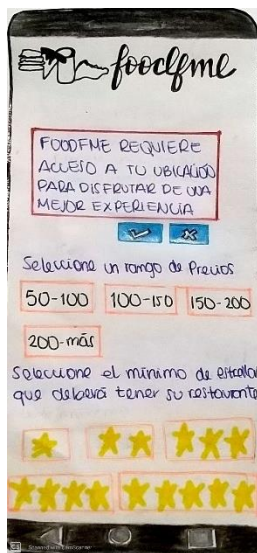 foodfme
FOODFME REQUIERE
ACCESO A TU UBICACIÓN
PARA DISFRUTAR DE UNA
MEJOR EXPERIENCIA
Seleccione un rango de Precios
50-100 100-150 150-200
200-más
Seleccione el mínimo de estrellas
que deberá tener su restaurante
CS